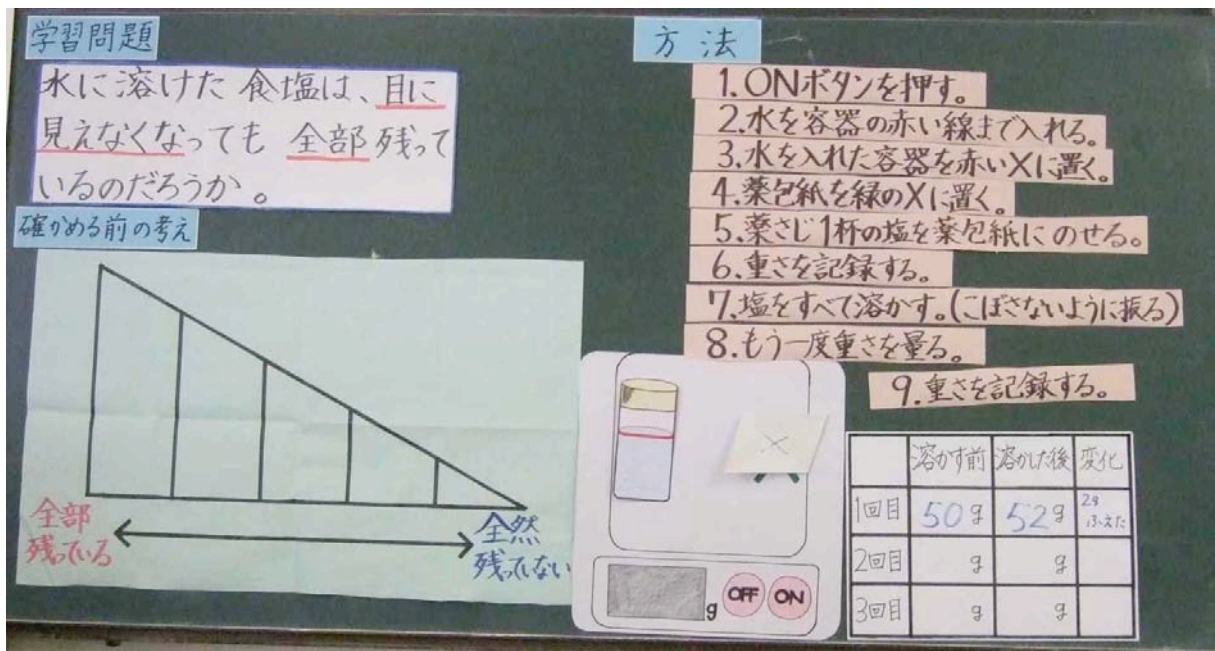 学習問題
水に溶けた食塩は、目に
見えなくなっても全部残って
いるのだろうか。
確かめる前の考え
全部
残っている
全然
残っていない
方法
1.ONボタンを押す。
2.水を容器の赤い線まで入れる。
3.水を入れた容器を赤いXに置く。
4.薬包紙を緑のXに置く。
5.薬さじ1杯の塩を薬包紙にのせる。
6.重さを記録する。
7.塩をすべて溶かす。(こぼさないように振る)
8.もう一度重さを量る。
9.重さを記録する。
g OFF ON
溶かす前 溶かした後 変化
1回目 50g 52g 2gふえた
2回目 g g
3回目 g g